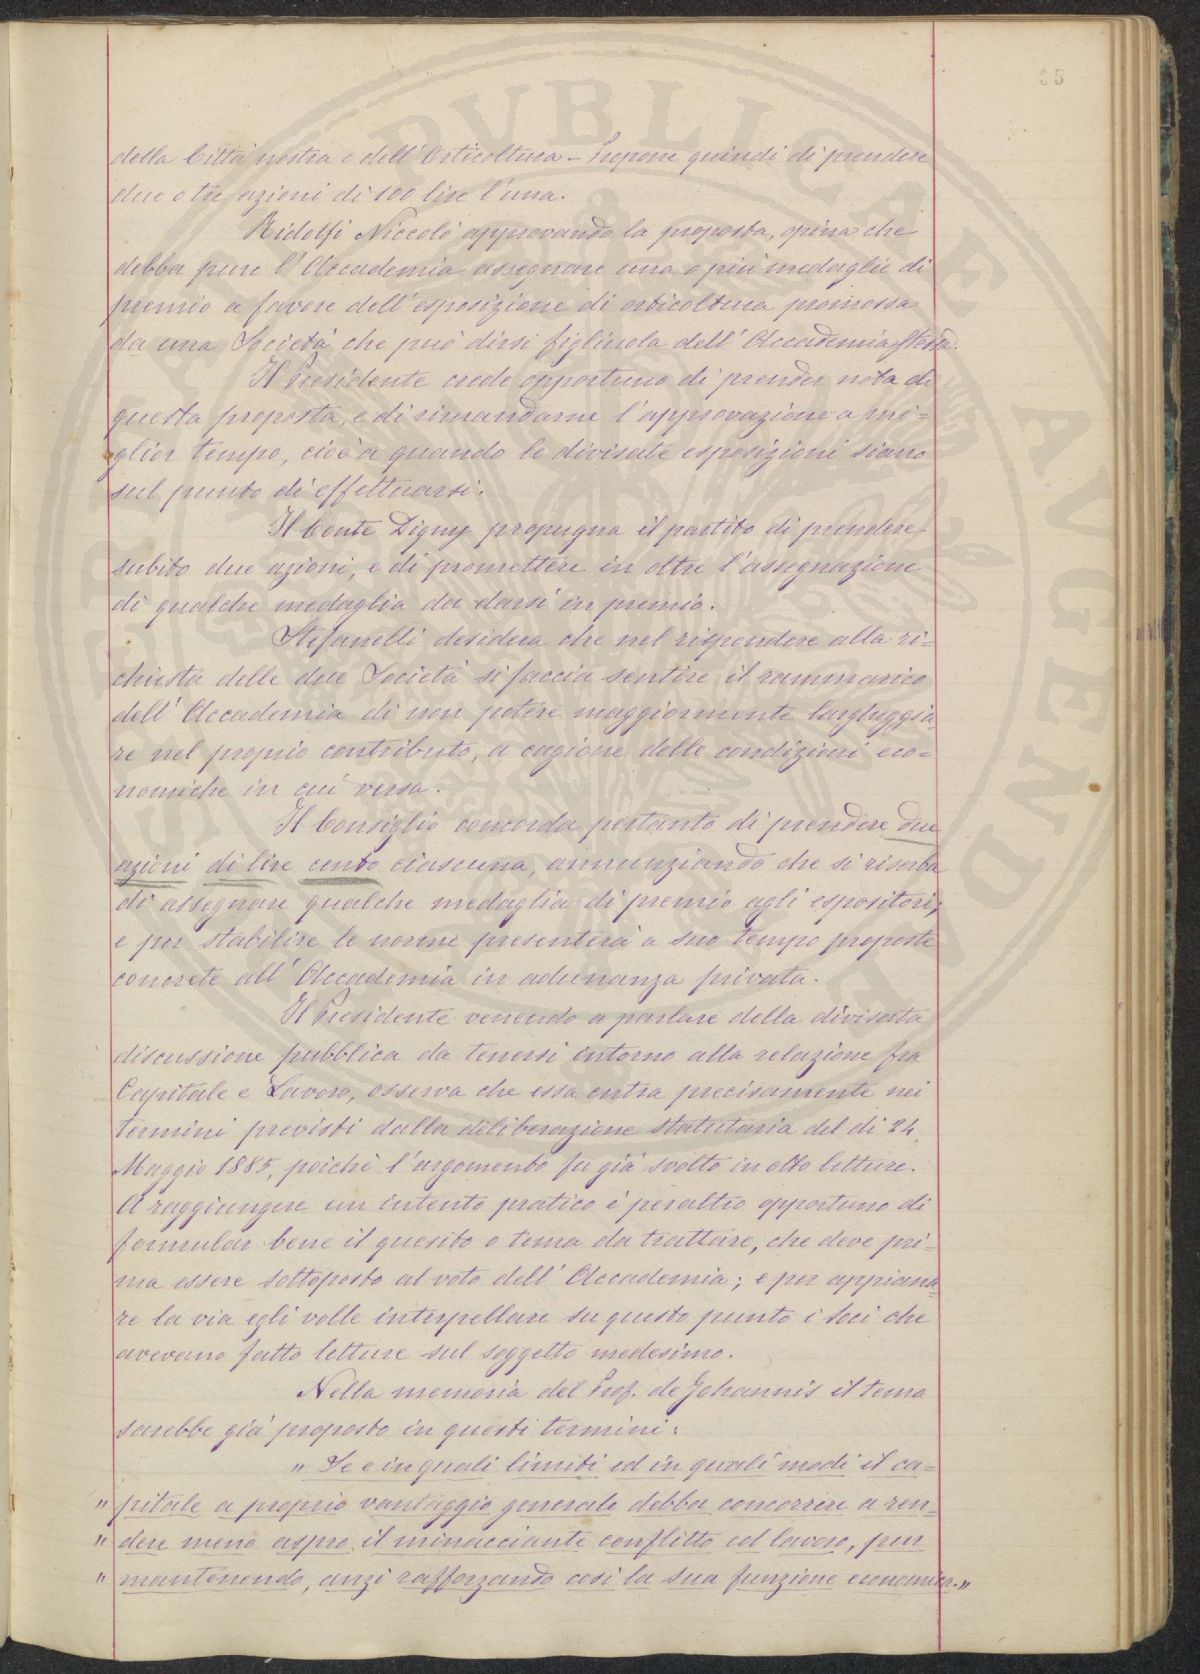 55
della Città nostra e dell'Orticoltura - Propone quindi di prendere
due o tre azioni di 100 lire l'una.
Ridolfi Niccolò approvando la proposta, opina che
debba pure l'Accademia assegnare una o più medaglie di
premio a favore dell'esposizione di orticoltura promossa
da una Società che può dirsi figliuola dell'Accademia stessa.
Il Presidente crede opportuno di prender nota di
questa proposta, e di rimandarne l'approvazione a mi=
glior tempo, cioè a quando le divisate esposizioni siano
sul punto di effettuarsi.
Il Conte Digny propugna il partito di prendere
subito due azioni, e di promettere in oltre l'assegnazione
di qualche medaglia da darsi in premio.
Stefanelli desidera che nel rispondere alla ri=
chiesta delle due Società si faccia sentire il rammarico
dell'Accademia di non potere maggiormente largheggia
re nel proprio contributo, a cagione delle condizioni eco=
nomiche in cui versa.
Il Consiglio concorda pertanto di prendere due
azioni di lire cento ciascuna, annunziando che si riserba
di assegnare qualche medaglia di premio agli espositori;
e per stabilire le norme presenterà a suo tempo proposte
concrete all'Accademia in adunanza privata.
Il Presidente venendo a parlare della divisata
discussione pubblica da tenersi intorno alla relazione fra
Capitale e Lavoro, osserva che essa entra precisamente nei
termini previsti dalla deliberazione statutaria del dì 24
Maggio 1885, poichè l'argomento fu già svolto in otto letture.
A raggiungere un intento pratico è peraltro opportuno di
formular bene il quesito o tema da trattare, che deve pri=
ma essere sottoposto al voto dell'Accademia; e per appiana=
re la via egli volle interpellare su questo punto i Soci che
avevano fatto letture sul soggetto medesimo.
Nella memoria del Prof. de Johannis il tema
sarebbe già proposto in questi termini:
" Se e in quali limiti ed in quali modi il ca=
" pitale a proprio vantaggio generale debba concorrere a ren=
" dere meno aspro il minacciante conflitto col lavoro, pur
" mantenendo, anzi rafforzando così la sua funzione economica."